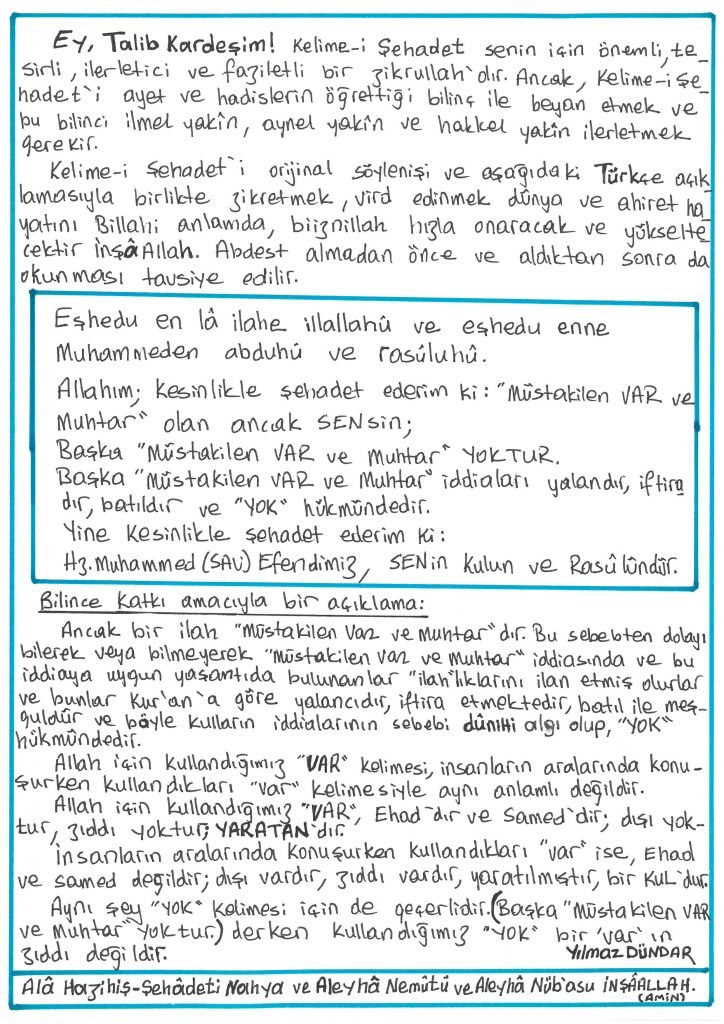 Ey, Talib Kardeşim! Kelime-i Şehadet senin için önemli, te-
sirli, ilerletici ve faziletli bir zikrullah`dır. Ancak, Kelime-i Şe-
hadet`i ayet ve hadislerin öğrettiği bilinç ile beyan etmek ve
bu bilinci ilmel yakîn, aynel yakîn ve hakkel yakîn ilerletmek
gerekir.
Kelime-i Şehadet`i orijinal söylenişi ve aşağıdaki Türkçe açık
lamasıyla birlikte zikretmek, vird edinmek dünya ve ahiret ha
yatını Billahi anlamda, biiznillah hızla onaracak ve yükselte
cektir İnşâAllah. Abdest almadan önce ve aldıktan sonra da
okunması tavsiye edilir.
Eşhedu en lâ ilahe illallahû ve eşhedu enne
Muhammeden abduhû ve rasûluhû.
Allahım; kesinlikle şehadet ederim ki: "Müstakilen VAR ve
Muhtar" olan ancak SENsin;
Başka "Müstakilen VAR ve Muhtar" YOKTUR.
Başka "Müstakilen VAR ve Muhtar" iddiaları yalandır, iftira
dır, batıldır ve "YOK" hükmündedir.
Yine kesinlikle şehadet ederim ki:
Hz. Muhammed (SAV) Efendimiz, SENin Kulun ve Rasûlündür.
Bilince katkı amacıyla bir açıklama:
Ancak bir ilah "Müstakilen Var ve Muhtar"dır. Bu sebebten dolayı
bilerek veya bilmeyerek "Müstakilen Var ve Muhtar" iddiasında ve bu
iddiaya uygun yaşantıda bulunanlar "ilah"lıklarını ilan etmiş olurlar
ve bunlar Kur'an`a göre yalancıdır, iftira etmektedir, batıl ile meş-
guldür ve böyle kulların iddialarının sebebi dûnihi algı olup, "YOK"
hükmündedir.
Allah için kullandığımız "VAR" kelimesi, insanların aralarında konu-
şurken kullandıkları "var" kelimesiyle aynı anlamlı değildir.
Allah için kullandığımız "VAR", Ehad`dır ve Samed`dir; dışı yok-
tur, zıddı yoktur; YARATAN`dır.
İnsanların aralarında konuşurken kullandıkları "var" ise, Ehad
ve samed değildir; dışı vardır, zıddı vardır, yaratılmıştır, bir KUL`dur.
Aynı şey "YOK" kelimesi için de geçerlidir. (Başka "Müstakilen VAR
ve Muhtar" Yoktur.) derken kullandığımız "YOK" bir 'var'ın
zıddı değildir.
Yılmaz DÜNDAR
Alâ Hazihiş-Şehâdeti Nahya ve Aleyhâ Nemûtû ve Aleyhâ Nüb'asu İNŞÂALLAH.
(AMİN)